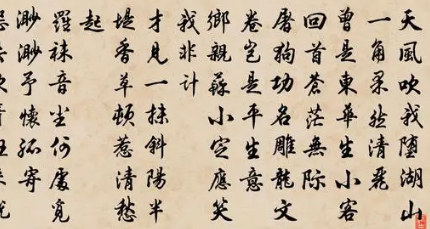 天風吹我墮湖山
一角果然清麗
曾是東華生小客
回首蒼茫無際
屠狗功名雕龍文
卷豈是平生意
鄉親蘇小定應笑
我非計
才見一抹斜陽半
堤香草頓惹清愁
起
羅袜音塵何處覓
渺渺予懷孤寄